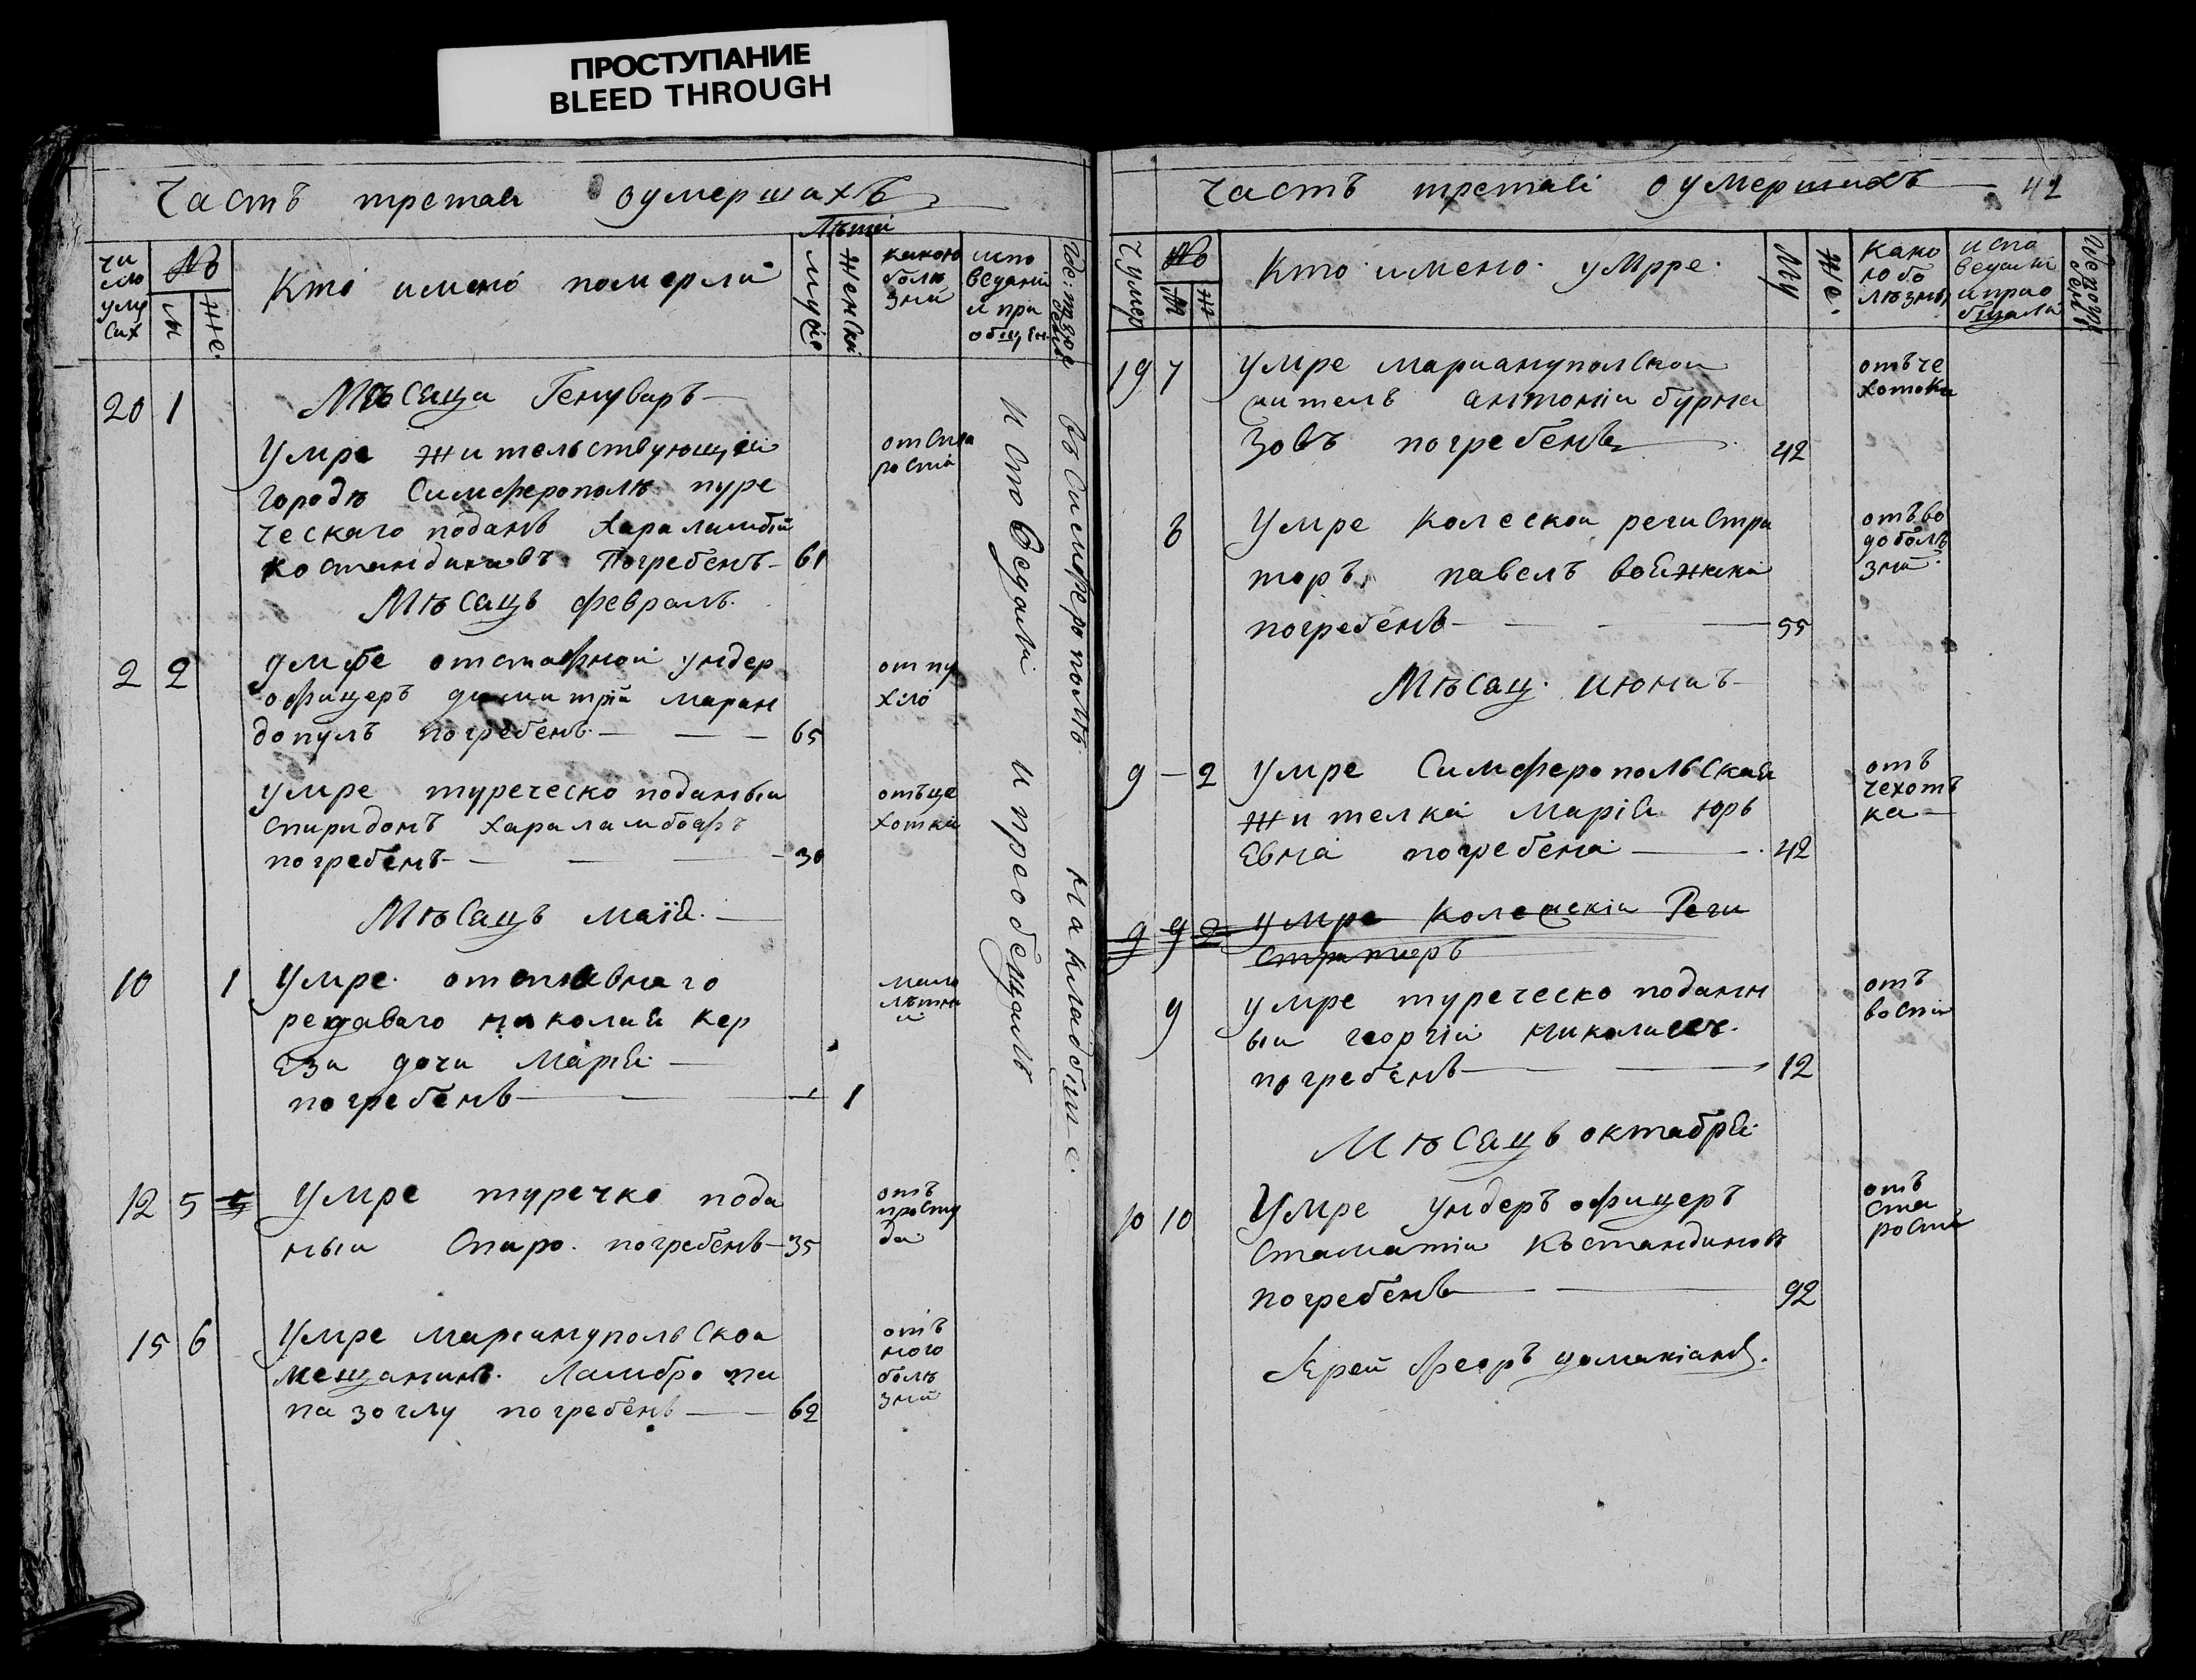 ПРОСТУПАНИЕ
BLEED THROUGH
Часть третаи оумершихъ
Лѣта
чи
сло
уму
сих
№
м
же.
Кто имено померли
муж
женски
какою
болѣ
зни
испо
ведани
и при
общен.
Мѣсаца Генуваръ
20 1
Умре жительствующеи
городѣ Симферополѣ туре
ческаго поданъ Хараламбій
костандиновъ Погребенъ 61
от ста
рости
Мѣсацъ февралъ.
2 2
умре отставной ундер
офицеръ димитрій маран
допулъ погребенъ 65
умре туреческо поданыи
спиридонъ хараламбовъ
погребенъ 30
Мѣсацъ маія.
10 1
Умре отставнаго
редаваго николаи кер
еза дочи Маріа
погребенъ 1
мало
лѣтна
12 5
Умре туречко пода
ныи Спиро. погребенъ 35
отъ
просту
да
15 6
Умре маріануполѣскои
мещанинъ. Ламбро па
па зоглу погребенъ 62
отъ
ного
болѣ
зни
исповедани и преобещаны
въ Симферополѣ на кладбіще.
Частъ третаи оумершихъ 42
чумер
№
м
ж
Кто имено умрре
Му
Же.
Како
ю бо
лѣзнь
испо
ведани
и прио
бщали
19 7
умре мариануполской
житель антоніи бурна
зовъ погребенъ 42
отъ че
хотки
8
Умре колескои регистра
торъ, павелъ
погребенъ 55
отъ во
до болѣ
зни
Мѣсац июниъ
9 — 2
Умре Симферопольскаи
жителка Маріа юрь
евна погребена 42
отъ
чехотъ
ка
9 9 2
умре колешскіи Реги
страторъ
9
умре туреческо поданн
ыи георгіи николаевъ
погребенъ 12
отъ
воспи
Мѣсацъ октабра
10 10
Умре ундеръ офицеръ
стаматіи костандиновъ
погребенъ 92
отъ
ста
рости
Іерей Феоръ доманіанъ.